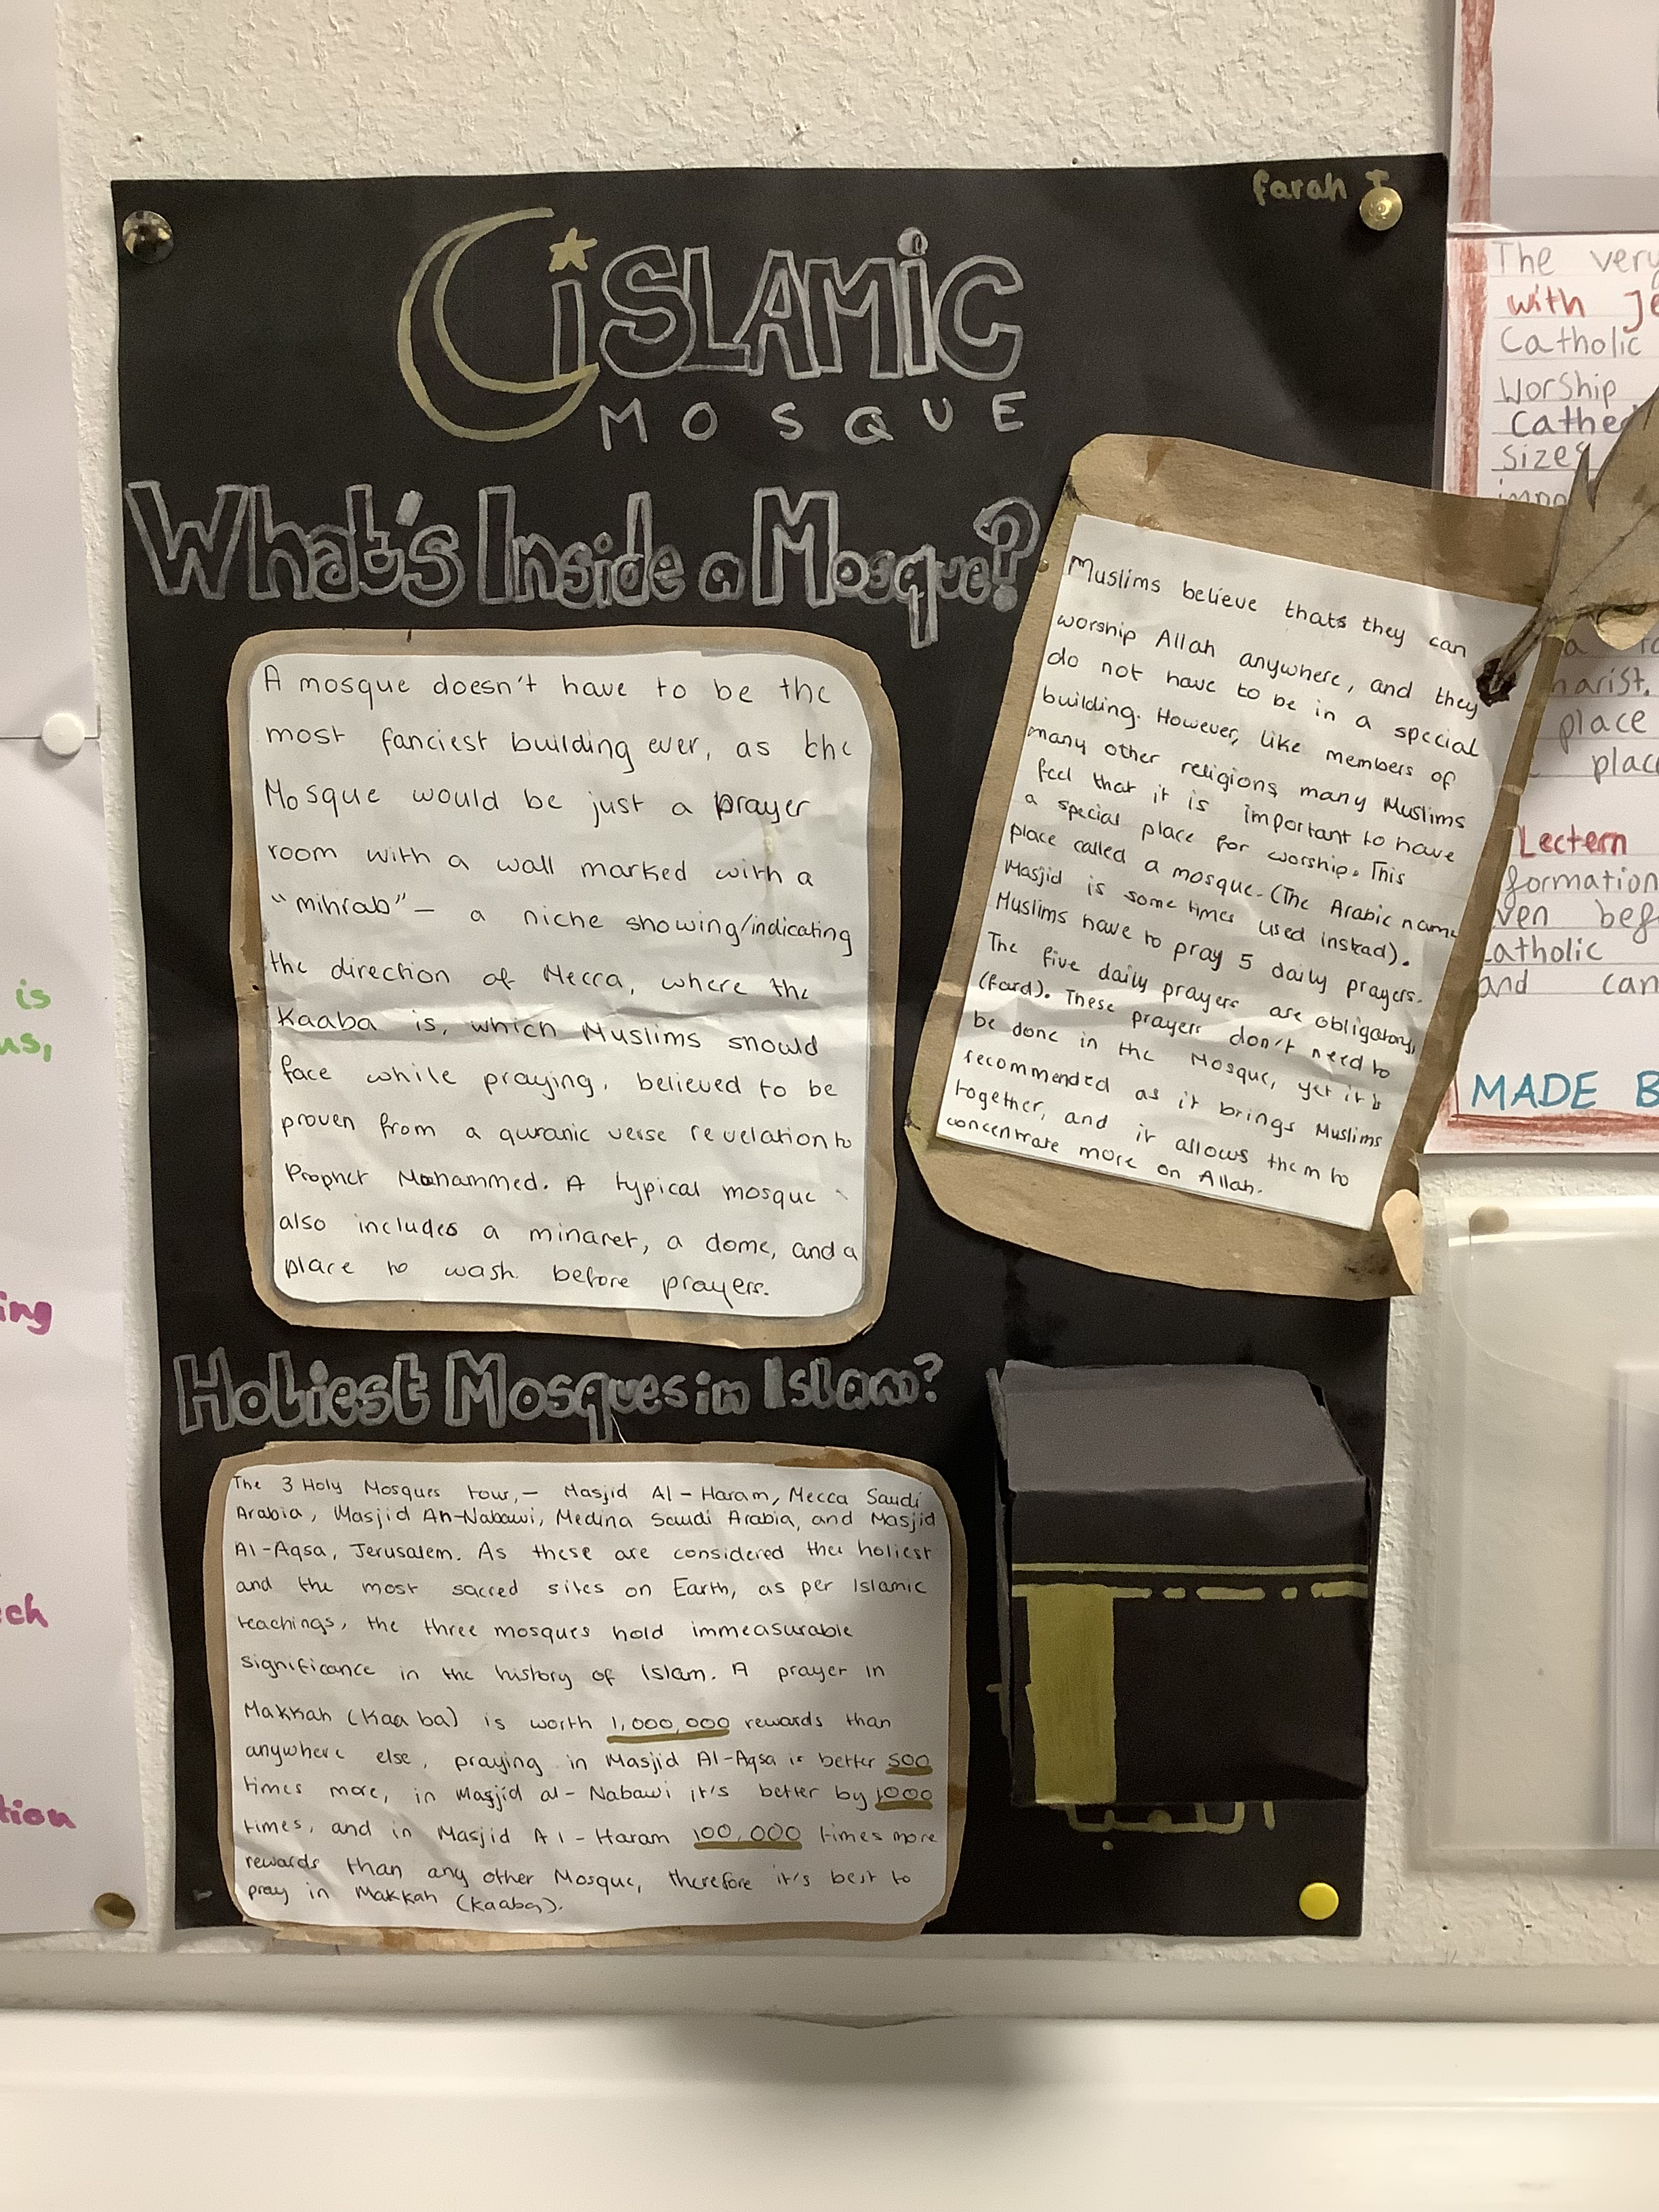 farah
iSLAMiC
MOSQUE
What's Inside a Mosque?
A mosque doesn't have to be the
most fanciest building ever, as the
Mosque would be just a prayer
room with a wall marked with a
"mihrab"– a niche showing/indicating
the direction of Mecca, where the
Kaaba is, which Muslims should
face while praying, believed to be
proven from a quranic verse revelation to
Prophet Mohammed. A typical mosque
also includes a minaret, a dome, and a
place to wash before prayers.
Muslims believe thats they can
worship Allah anywhere, and they
do not have to be in a special
building. However, like members of
many other religions many Muslims
feel that it is important to have
a special place for worship. This
place called a mosque. (The Arabic name
Masjid is some times used instead).
Muslims have to pray 5 daily prayers.
The five daily prayers are obligatory,
(Fard). These prayers don't need to
be done in the Mosque, yet it's
recommended as it brings Muslims
together, and it allows them to
concentrate more on Allah.
Holiest Mosques in Islam?
The 3 Holy Mosques tour,– Masjid Al-Haram, Mecca Saudi
Arabia, Masjid An-Nabawi, Medina Saudi Arabia, and Masjid
Al-Aqsa, Jerusalem. As these are considered the holiest
and the most sacred sites on Earth, as per Islamic
teachings, the three mosques hold immeasurable
significance in the history of Islam. A prayer in
Makkah (Kaaba) is worth 1,000,000 rewards than
anywhere else, praying in Masjid Al-Aqsa is better 500
times more, in Masjid al-Nabawi it's better by 1000
times, and in Masjid Al-Haram 100,000 times more
rewards than any other Mosque, therefore it's best to
pray in Makkah (Kaaba).
The very
with Je
Catholic
Worship
Cathed
sizes
harist.
place
plac
Lectern
formation
ven bef
atholic
and can
MADE B
is
us,
ing
ech
tion